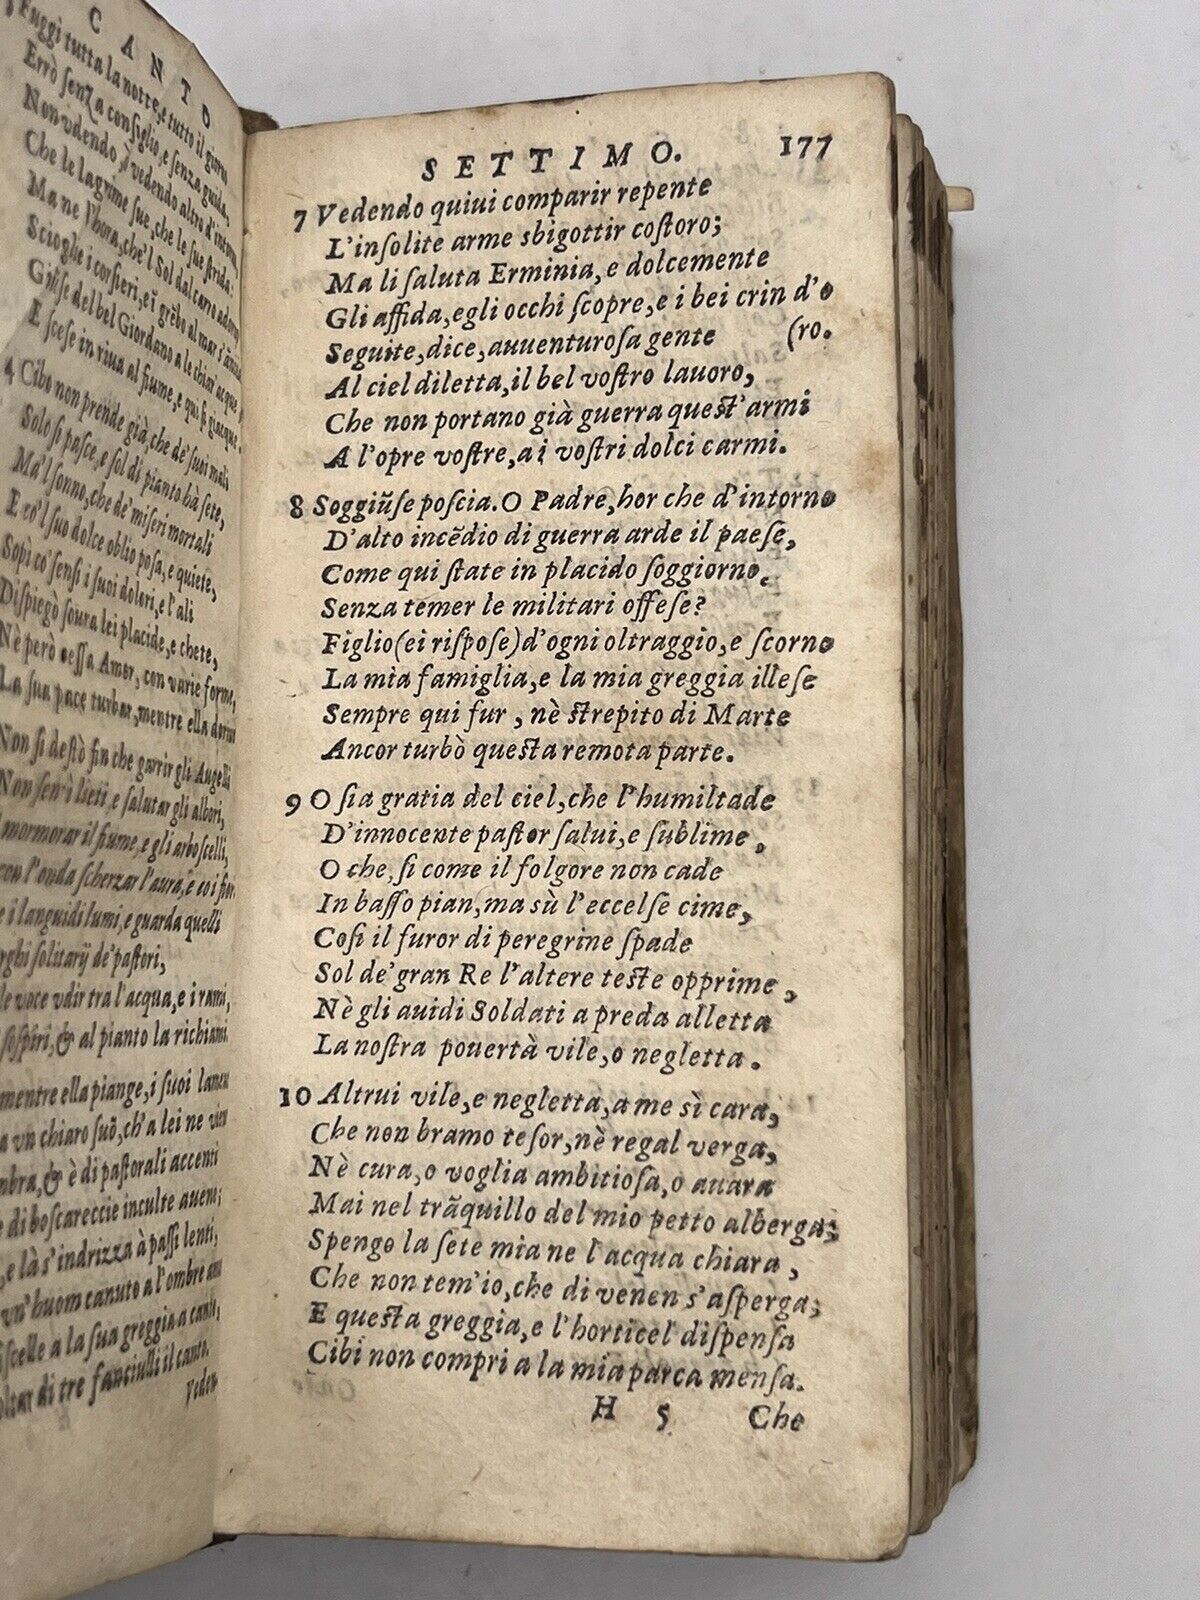 CANTO
Fuggì tutta la notte, e tutto il giorno
Errò ſenza conſiglio, e ſenza guida,
Non vdendo, ò vedendo altro d'intorno,
Che le lagrime ſue, che le ſue ſtrida:
Ma ne l'hora, che'l Sol dal carro adorno
Scioglie i corſieri, e ĩ grẽbo al mar s'ãnida
Giũſe del bel Giordano a le chiar'acque
E sceſe in riua al fiume, e qui ſi giacque.
4 Cibo non prende già, che de' ſuoi mali
Solo ſi paſce, e ſol di pianto hà ſete,
Ma'l ſonno, che de' miſeri mortali
E co'l ſuo dolce oblio poſa, e quiete,
Sopì co' ſenſi i ſuoi dolori, e l'ali
Diſpiegò ſoura lei placide, e chete,
Nè però ceſſa Amor, con varie forme,
La ſua pace turbar, mentre ella dorme
Non ſi deſtò fin che garrir gli Augelli
Non ſentì lieti, e ſalutar gli albori,
mormorar il fiume, e gli arboſcelli,
con l'onda ſcherzar l'aura, e co i fior
e i languidi lumi, e guarda quelli
rghi ſolitarij de' paſtori,
le voce vdir tra l'acqua, e i rami,
ſoſpiri, & al pianto la richiami.
mentre ella piange, i ſuoi lament
a vn chiaro ſuõ, ch'a lei ne vien
mbra, & è di paſtorali accenti
e di boscareccie inculte auene;
e là s'indrizza à paſſi lenti,
vn'huom canuto a l'ombre am
iſcelle a la ſua greggia a canto,
oltar di tre fanciulli il canto.
Veden
SETTIMO. 177
7 Vedendo quiui comparir repente
L'inſolite arme sbigottir coſtoro;
Ma li ſaluta Erminia, e dolcemente
Gli affida, egli occhi ſcopre, e i bei crin d'o
Seguite, dice, auuenturoſa gente (ro.
Al ciel diletta, il bel voſtro lauoro,
Che non portano già guerra queſt'armi
A l'opre voſtre, a i voſtri dolci carmi.
8 Soggiũſe poſcia. O Padre, hor che d'intorno
D'alto incẽdio di guerra arde il paeſe,
Come qui ſtate in placido ſoggiorno,
Senza temer le militari offeſe?
Figlio (ei riſpoſe) d'ogni oltraggio, e ſcorno
La mia famiglia, e la mia greggia illeſe
Sempre qui fur, nè ſtrepito di Marte
Ancor turbò queſta remota parte.
9 O ſia gratia del ciel, che l'humiltade
D'innocente paſtor ſalui, e ſublime,
O che, ſi come il folgore non cade
In baſſo pian, ma sù l'eccelſe cime,
Coſi il furor di peregrine ſpade
Sol de' gran Re l'altere teſte opprime,
Nè gli auidi Soldati a preda alletta
La noſtra pouertà vile, o negletta.
10 Altrui vile, e negletta, a me sì cara,
Che non bramo teſor, nè regal verga,
Nè cura, o voglia ambitioſa, o auara
Mai nel trãquillo del mio petto alberga;
Spengo la ſete mia ne l'acqua chiara,
Che non tem'io, che di venen s'aſperga;
E queſta greggia, e l'horticel diſpenſa
Cibi non compri a la mia parca menſa.
H 5 Che